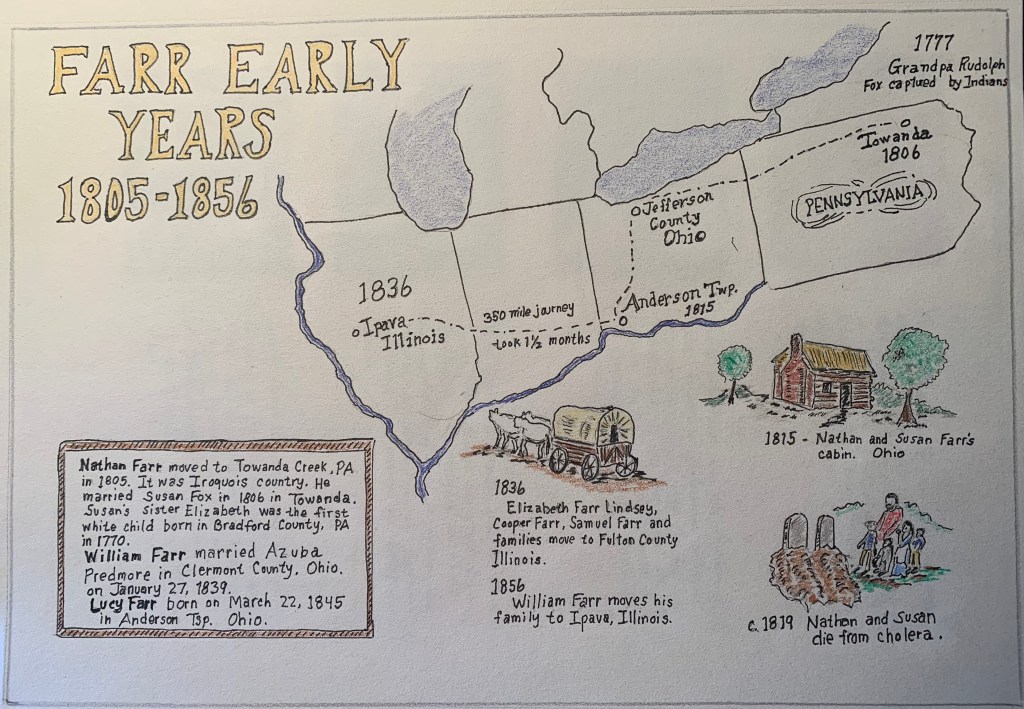 FARR EARLY
YEARS
1805-1856
1777
Grandpa Rudolph
Fox captured by Indians
Towanda
1806
PENNSYLVANIA
Jefferson
County
Ohio
Anderson Twp.
1815
350 mile journey
took 1½ months
1836
Ipava
Illinois
1815 - Nathan and Susan Farr's
cabin. Ohio
Nathan Farr moved to Towanda Creek, PA
in 1805. It was Iroquois country. He
married Susan Fox in 1806 in Towanda.
Susan's sister Elizabeth was the first
white child born in Bradford County, PA
in 1770.
William Farr married Azuba
Predmore in Clermont County, Ohio.
on January 27, 1839.
Lucy Farr born on March 22, 1845
in Anderson Tsp. Ohio.
1836
Elizabeth Farr Lindsey,
Cooper Farr, Samuel Farr and
families move to Fulton County
Illinois.
1856
William Farr moves his
family to Ipava, Illinois.
c. 1819 Nathan and Susan
die from cholera.